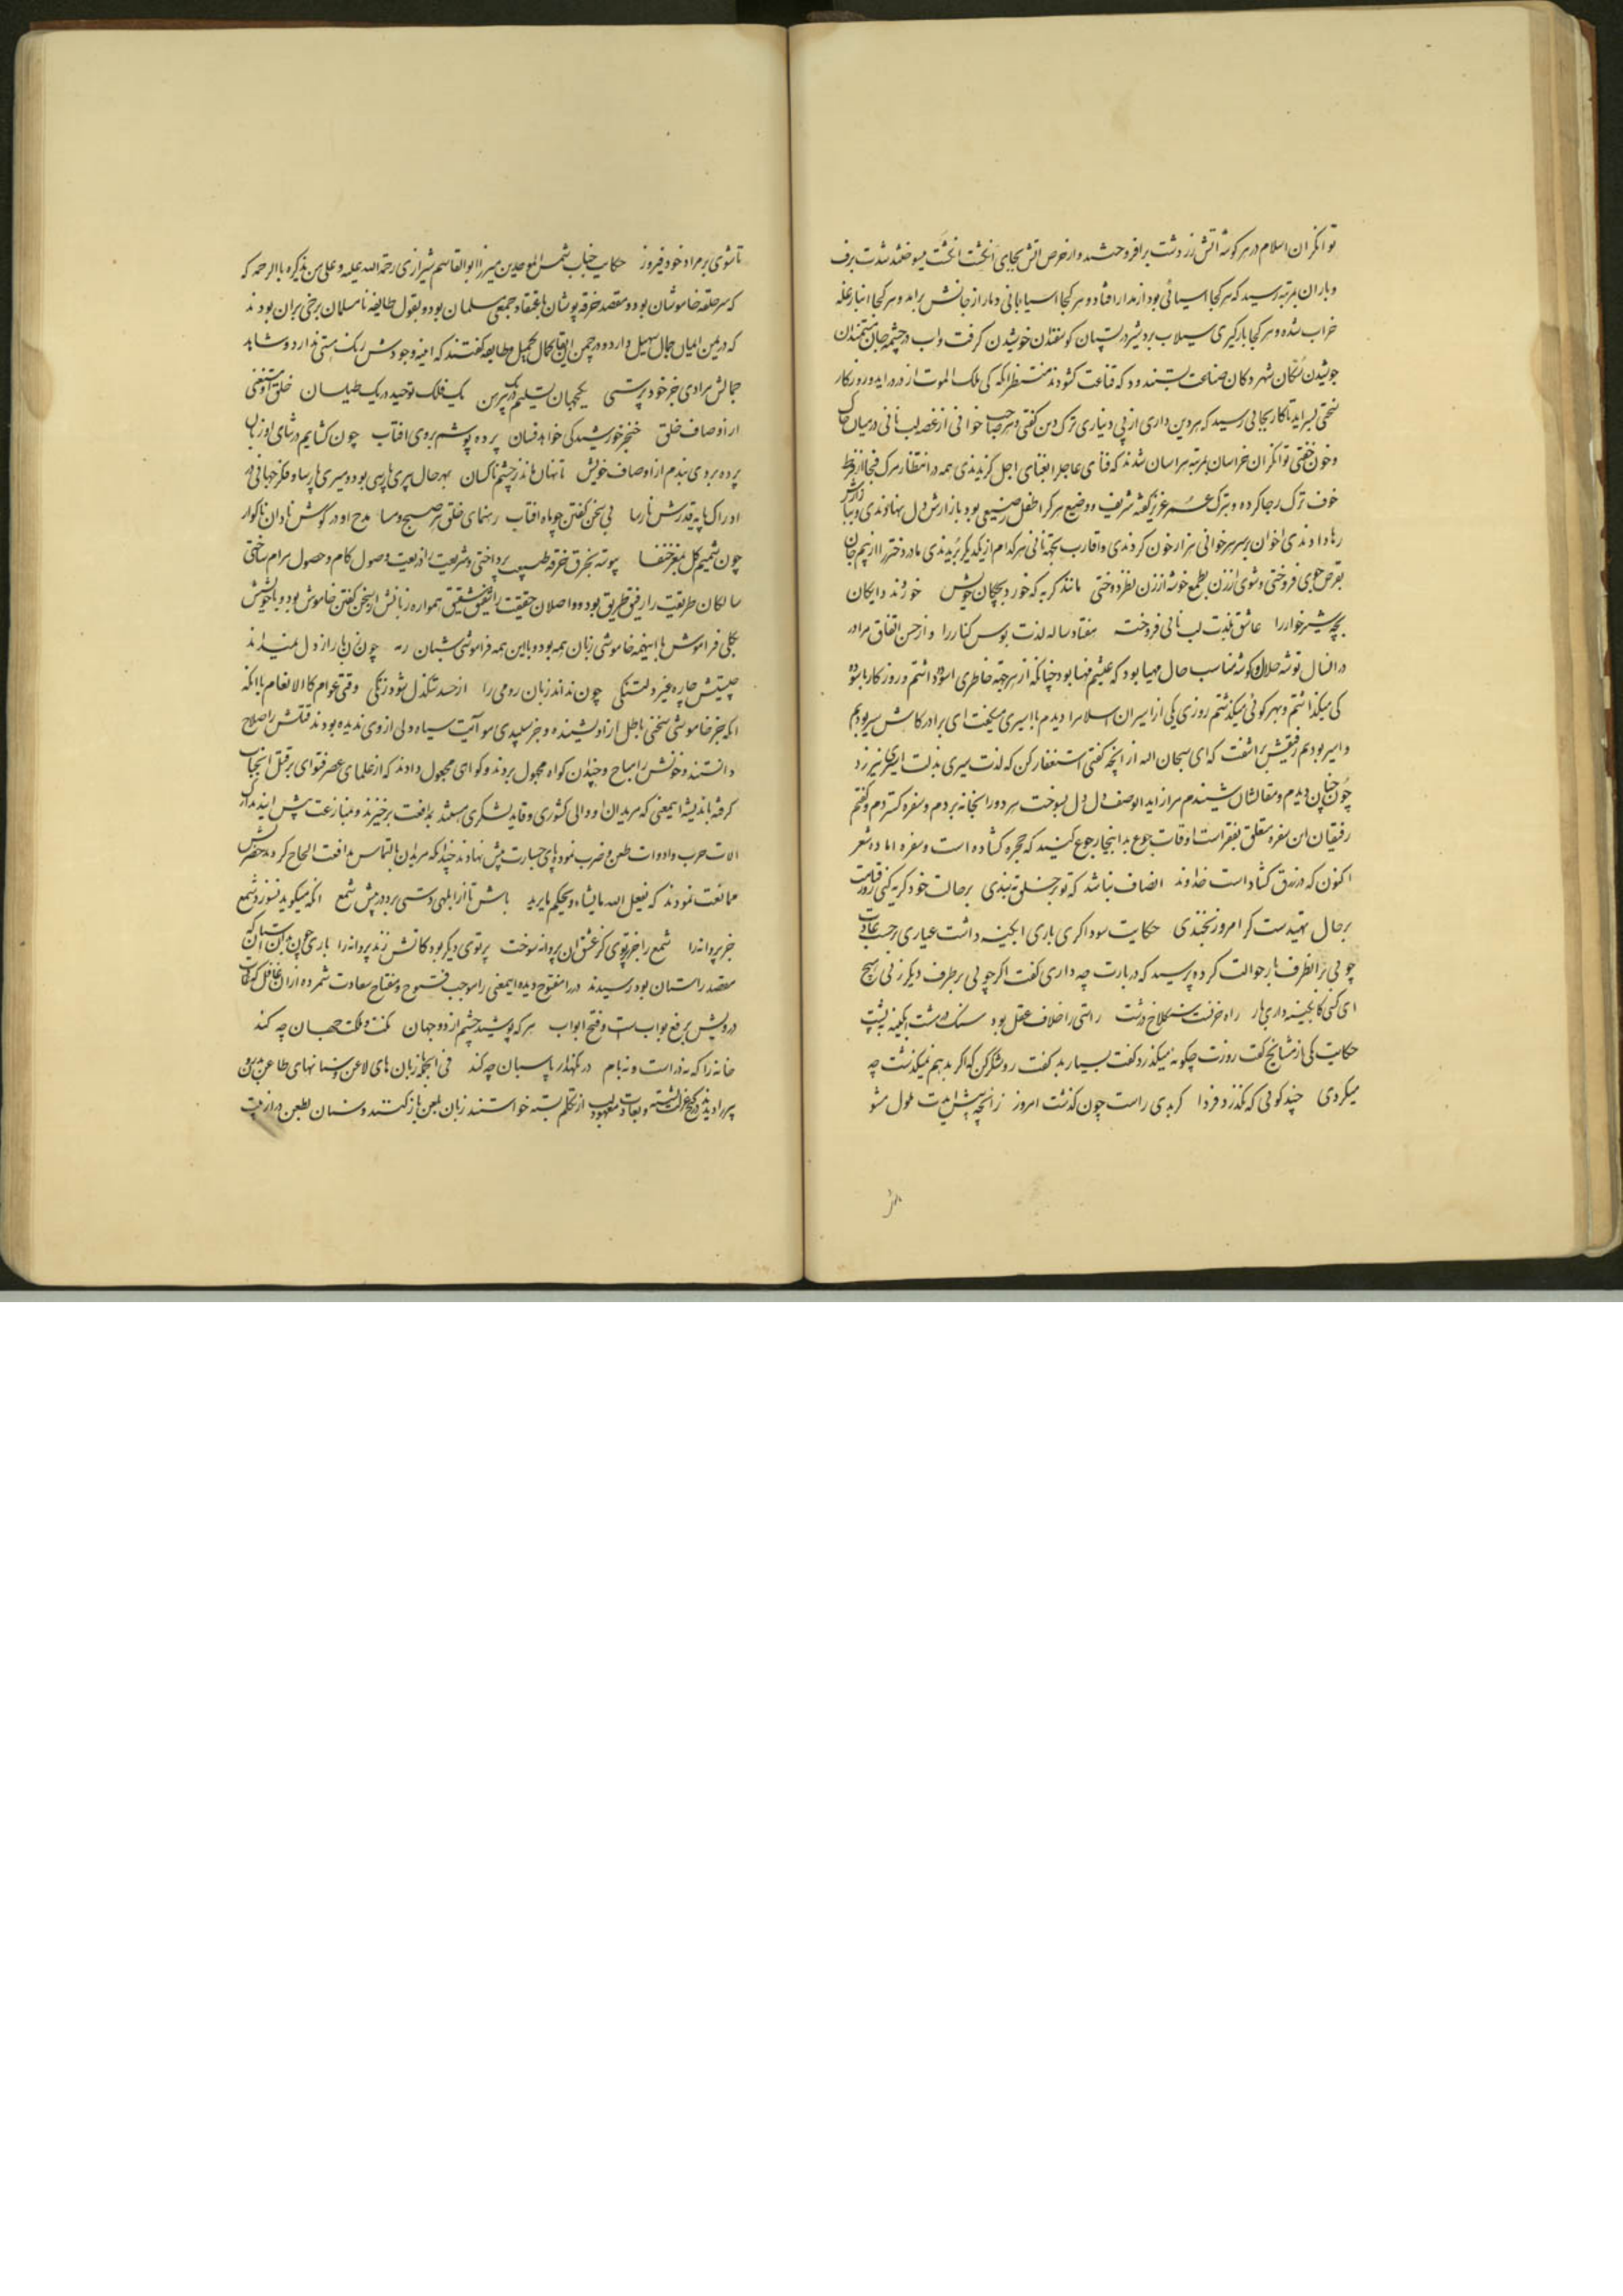 توانکران اسلام در هر کوشه اتش زردشت برافروختند و از حرص اتش بجای انکشت انکشت میسوختند شدت برف
و باران بمرتبه رسید که هر کجا اسیائی بود از مدار افتاد و هر کجا اسیابانی دمار از جانش برامد و هر کجا انبار غله
خراب شده و هر کجا بارکیری سیلاب برد شیر در پستان کوسفندان خوشیدن کرفت و اب در چشمه جان مستمندان
جوشیدن سکان شهر دکان صناعت بستند و دکه قناعت کشودند منتظر انکه کی ملک الموت از در دراید و روزکار
سختی بسراید تا کار بجایی رسید که هر دین داری از پی دیناری ترک دین کفتی و هر صاحب خوانی از غصه لب نانی در میان خاک
و خون خفتی توانکران خراسان بمرتبه هراسان شدند که فنای عاجل را بغنای اجل کزیدندی همه در انتظار مرک فجا از فرط
خوف ترک رجا کرده و ترک عمر عزیز کفته شریف و وضیع هر کرا طفل رضیعی بود بازارش دل نهادوندی و ببازارش
رها دادندی اخوان بر سر هر خوانی هزار خون کردندی و اقارب بجهة نانی هر کدام از یکدیکر بریدندی مادر دختر را از بیم جان
بقرص جوی فروختی و شوی از زن بطمع خوشه ارزن نظر دوختی مانند کربه که خورد بچکان خویش خوردند دایکان
بچه شیرخوار را عاشق بلذت لب نانی فروخته هفتاد ساله لذت بوس کنار را و از حسن اتفاق مرا در
در انسال توشه حلال و کوشه مناسب حال مهیا بود که عیشم مهنا بود چنانکه از هر جهة خاطری اسوده داشتم و روزکار باسوده
کی میکذاشتم و بهر کوئی میکذشتم روزی یکی از اسیران اسلام را دیدم با اسیری میکفت ای برادر کاش سیر بودیم
و اسیر بودیم رفیقش براشفت که ای سبحان الله از انچه کفتی استغفار کن که لذت سیری بذلت اسیری نیرزد
چون چنان دیدم و مقالشان شنیدم مرا از اید الوصف دل دل بسوخت هر دو را بخانه بردم و سفره کستردم و کفتم
رفیقان این سفره متعلق بفقراست اوقات جوع بدا ینجا رجوع کنید که حجره کشاده است و سفره اماده شعر
اکنون که در رزق کشاد است خداوند انصاف نباشد که تو بر خلق ببندی بر حالت خود کریه کنی روز قیامت
بر حال تهیدست کر امروز بخندی حکایت سوداکری باری ابکینه داشت عیاری بر حسب عادت
چوبی بر انطرف بار حوالت کرده پرسید که در بارت چه داری کفت اکر چوبی بر طرف دیکر زنی هیچ
ای کنی کابکینه داری بار راه خرفتست سنکلاخ درشت راستی را خلاف عقل بود سنک در مشت ابکینه به پشت
حکایت یکی از مشایخ کفت روزت چکونه میکذرد کفت بسیار بد کفت رو شکر کن که اکر بد هم نمیکذشت چه
میکردی چند کوئی که نکذرد فردا کر بدی راست چون کذشت امروز زانچه پیش ایدت ملول مشو
تا شوی بر مراد خود فیروز حکایت جناب شمس الموحدین میرزا ابوالقاسم شیرازی رحمة الله علیه و علی من یذکره بالرحمه که
که سر حلقه خاموشان بود و مقصد خرقه پوشان باعتقاد جمعی سلمان بود و بقول طایفه نامسلمان برخی بران بودند
که در یمن ایمان جمال سهیل دارد و در چمن ایقان کمال جمیل و طایفه کفتند که اینه وجودش رنک هستی ندارد و شاهد
جمالش مرادی جز خود پرستی یکجهان تسلیم در یک پیرهن یک فلک توحید در یک طیلسان خلق او مستغنی
از اوصاف خلق خنجر خورشید کی خواهد فسان پرده پوشم بروی افتاب چون کشایم در ثنای او زبان
پرده بردی بندم از اوصاف خویش تا نهان ماند ز چشم ناکسان بهر حال پیری پارسی بود و دمیری پارسا و فکر جهانی در
ادراک پایه قدرش نارسا بی سخن کفتن چو ماه افتاب رهنمای خلق هر صبح و مسا مدح او در کوش نادان ناکوار
چون شمیم کل بمغز خنفسا پیوسته بخرق خرقه طبیعت پرداختی و شریعت را ذریعت وصول کام و حصول مرام ساختی
سالکان طریقت را رفیق طریق بود و واصلان حقیقت را شفیق شقیق همواره زبانش از سخن کفتن خاموش بود و با خویشش
بکلی فراموش با اینهمه خاموشی زبان همه بود و با این همه فراموشی شبان رمه چون زبانها راز دل میداند
چیستش چاره غیر دلتنکی چون نداند زبان رومی را از حسد تنکدل شود زنکی وقتی عوام کالانعام با انکه
انکه جز خاموشی سخنی باطل از او نشنیده و جز سپیدی مو آیت سیاه دلی از وی ندیده بودند قتلش را صلاح
دانستند و خونش را مباح و چندان کواه مجهول بردند و کوای مجهول دادند که از علمای عصر فتوای بر قتل انجناب
کرفته باندیشه اینمعنی که مریدان او والی کشوری و قاید لشکری هستند بمدافعت برخیزند و بمنازعت پیش ایند تدارک
الات حرب و ادوات طعن و ضرب نموده پای جسارت پیش نهادند چندانکه مریدان بالتماس مدافعت الحاح کردند حضرتش
ممانعت نمودند که یفعل الله ما یشاء و یحکم ما یرید باش تا از ابلهی دستی برد در پیش شمع انکه میکوید نسوزد شمع
جز پروانه را شمع را جز پرتوی کز عشق ان پروانه سوخت پرتوی دیکر بود کاتش زند پروانه را باری چون بدان استان که
مقصد راستان بود رسیدند در را مفتوح دیده اینمعنی را موجب فتوح و مفتاح سعادت شمرده از ان غافل که حکایت
درویش بر فع بواب است و فتح ابواب هر که پوشید چشم از دو جهان مکنت و ملکت جهان چه کند
خانه را که نه در است و نه بام در نکهدار پاسبان چه کند فی الجمله زبان های لاعن و سنانهای طاعن بدرون
پیر را دیدند در کنج عزلت نشسته و بعادت معهود لب از تکلم بسته خواستند زبان بلعن باز کنند و سنان بطعن دراز هیبت